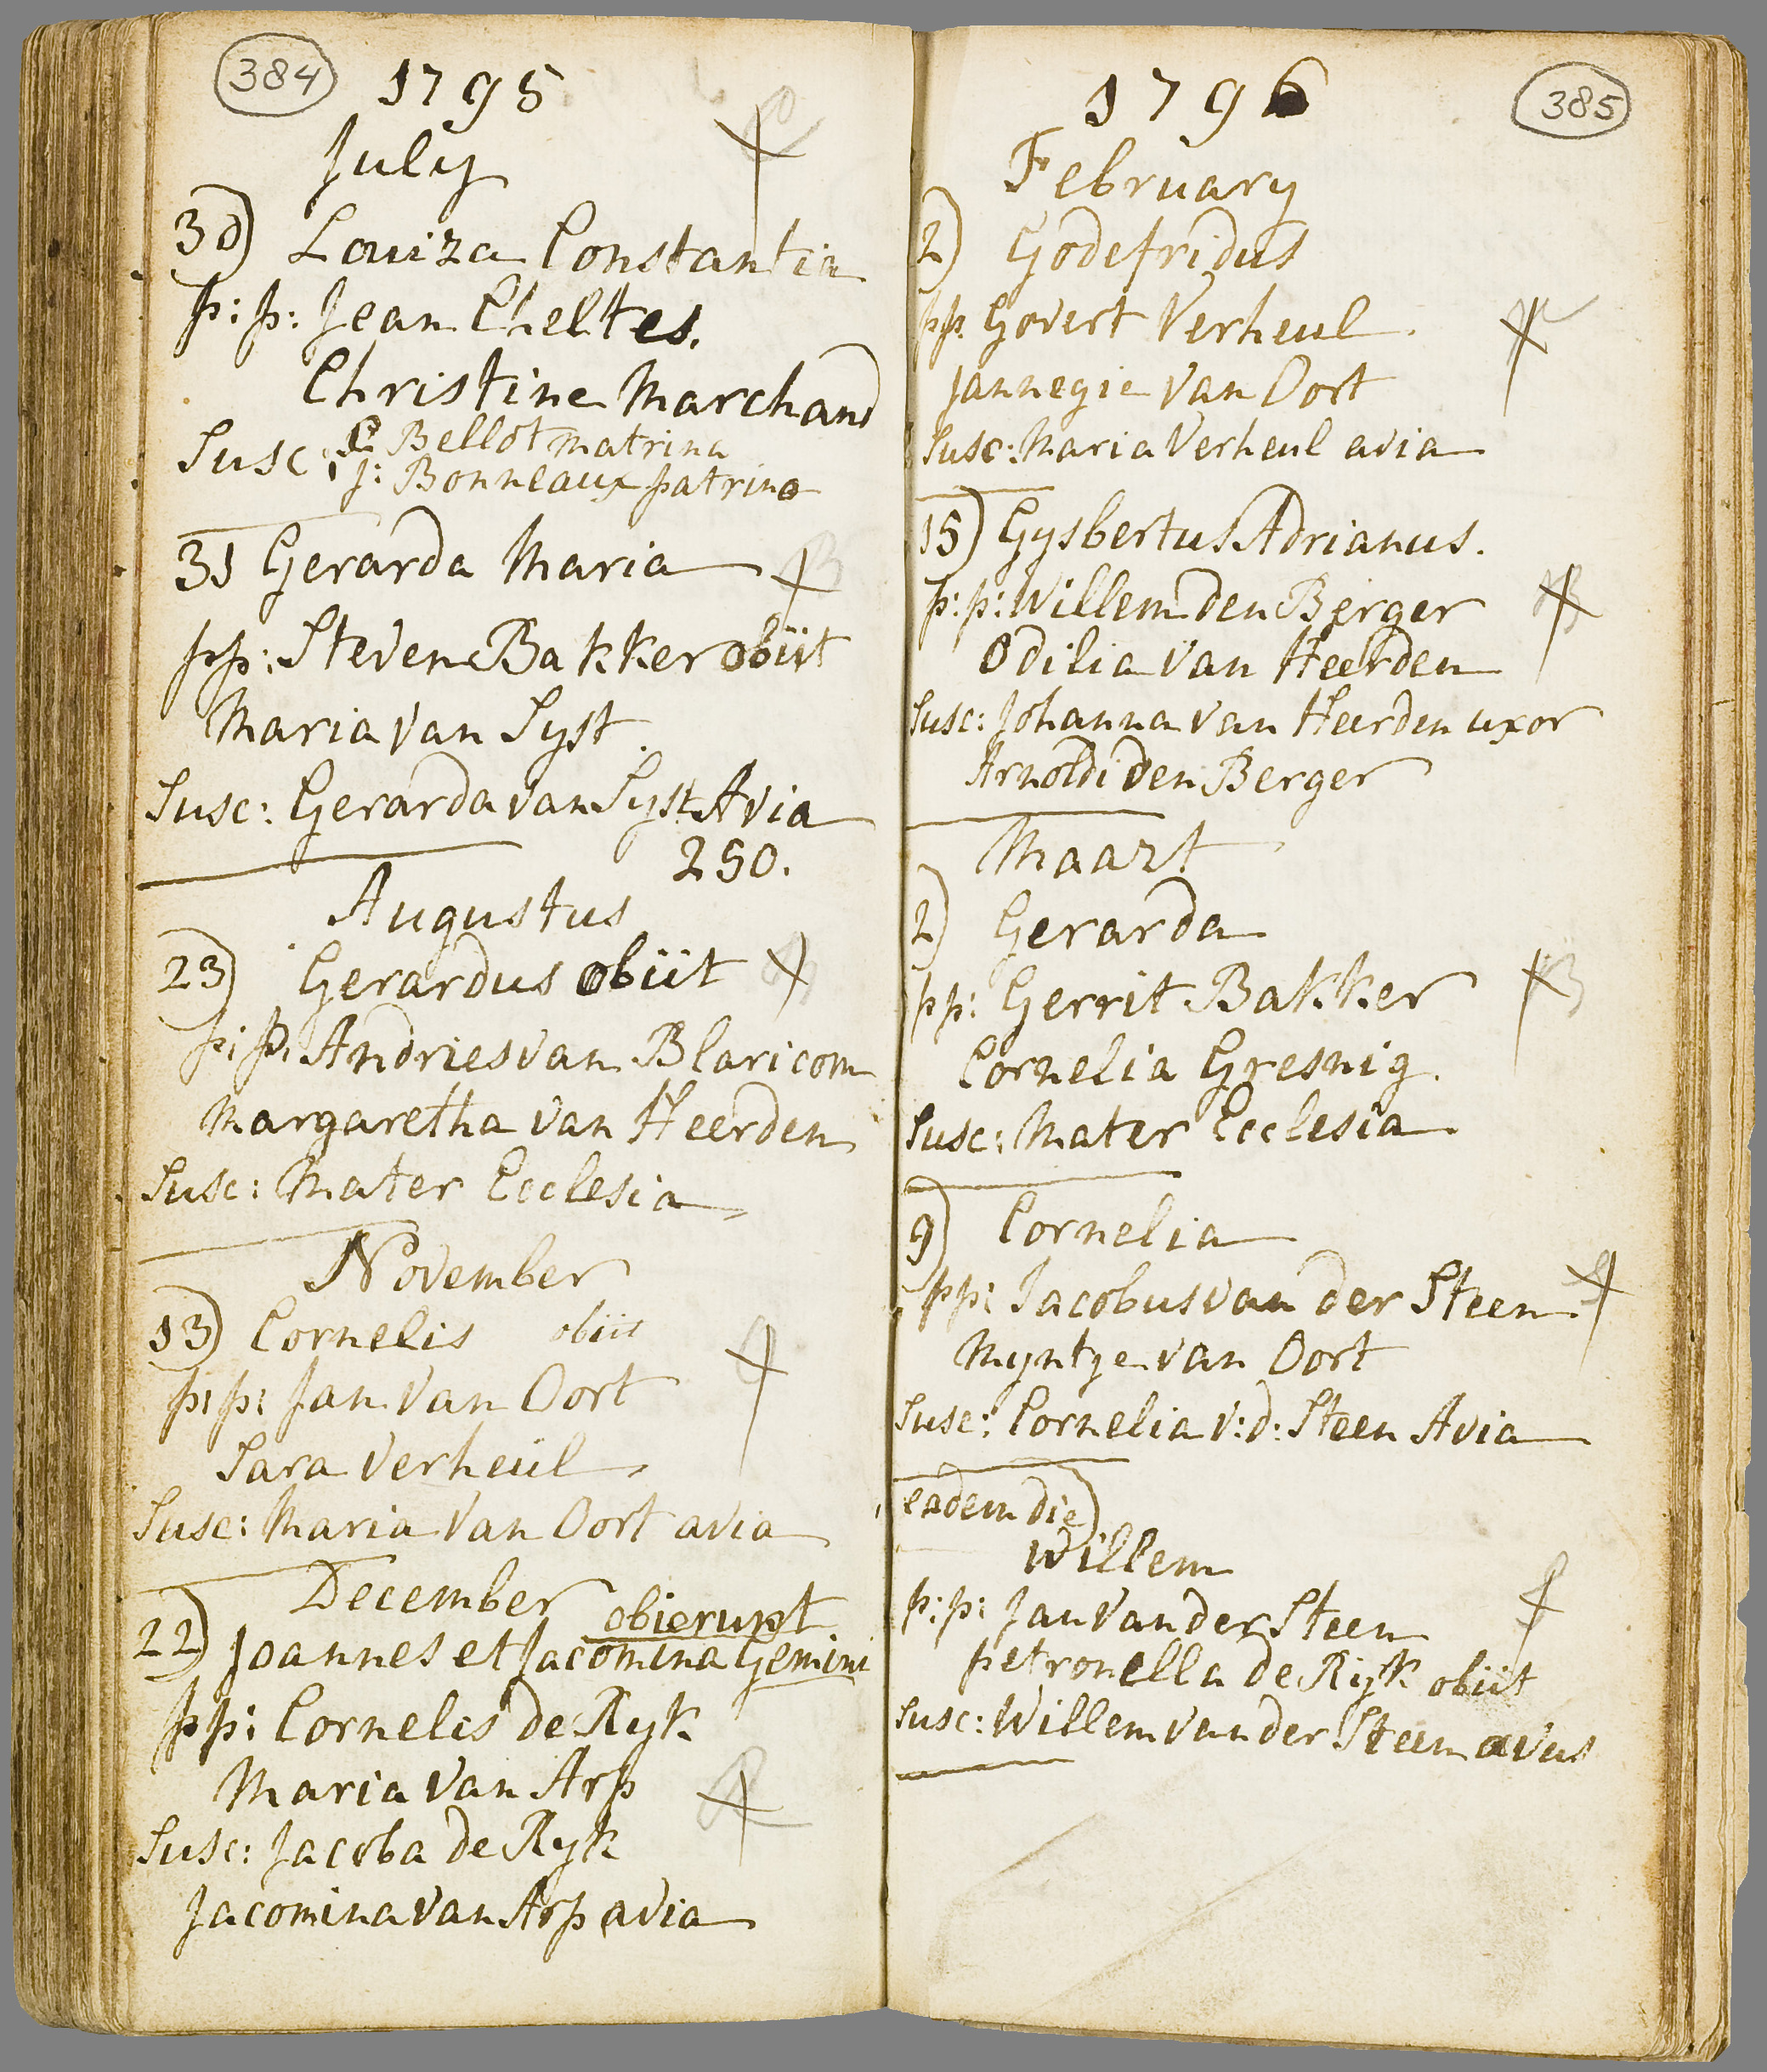 384
1795
July
30) Louiza Constantia
p: p: Jean Cheltes.
Christine Marchand
Susc: C Bellot matrina
J: Bonneaux patrino
31 Gerarda Maria
pp: Steven Bakker obiit
Maria van Syst.
Susc: Gerarda van Syst Avia
250.
Augustus
23) Gerardus obiit
p: p: Andries van Blaricom
Margaretha van Heerden
Susc: Mater Ecclesia
November
13) Cornelis obiit
p: p: Jan van Oort
Sara Verheül
Susc: Maria van Oort avia
December
obierunt
22) Joannes et Jacomina Gemini
pp: Cornelis de Ryk
Maria van Arp
Susc: Jacoba de Ryk
Jacomina van Arp avia
385
1796
February
2) Godefridus
pp. Govert Verheul
Jannegie van Oort
Susc: Maria Verheul avia
15) Gysbertus Adrianus.
p: p: Willem den Berger
Odilia van Heerden
Susc: Johanna van Heerden uxor
Arnoldi den Berger
Maart
2) Gerarda
pp: Gerrit Bakker
Cornelia Gresnig.
Susc: Mater Ecclesia
9) Cornelia
pp: Jacobus van der Steen
Myntje van Oort
Susc: Cornelia v: d: Steen Avia
eadem die)
Willem
p: p: Jan van der Steen
petronella de Rijk obiit
Susc: Willem van der Steen avus